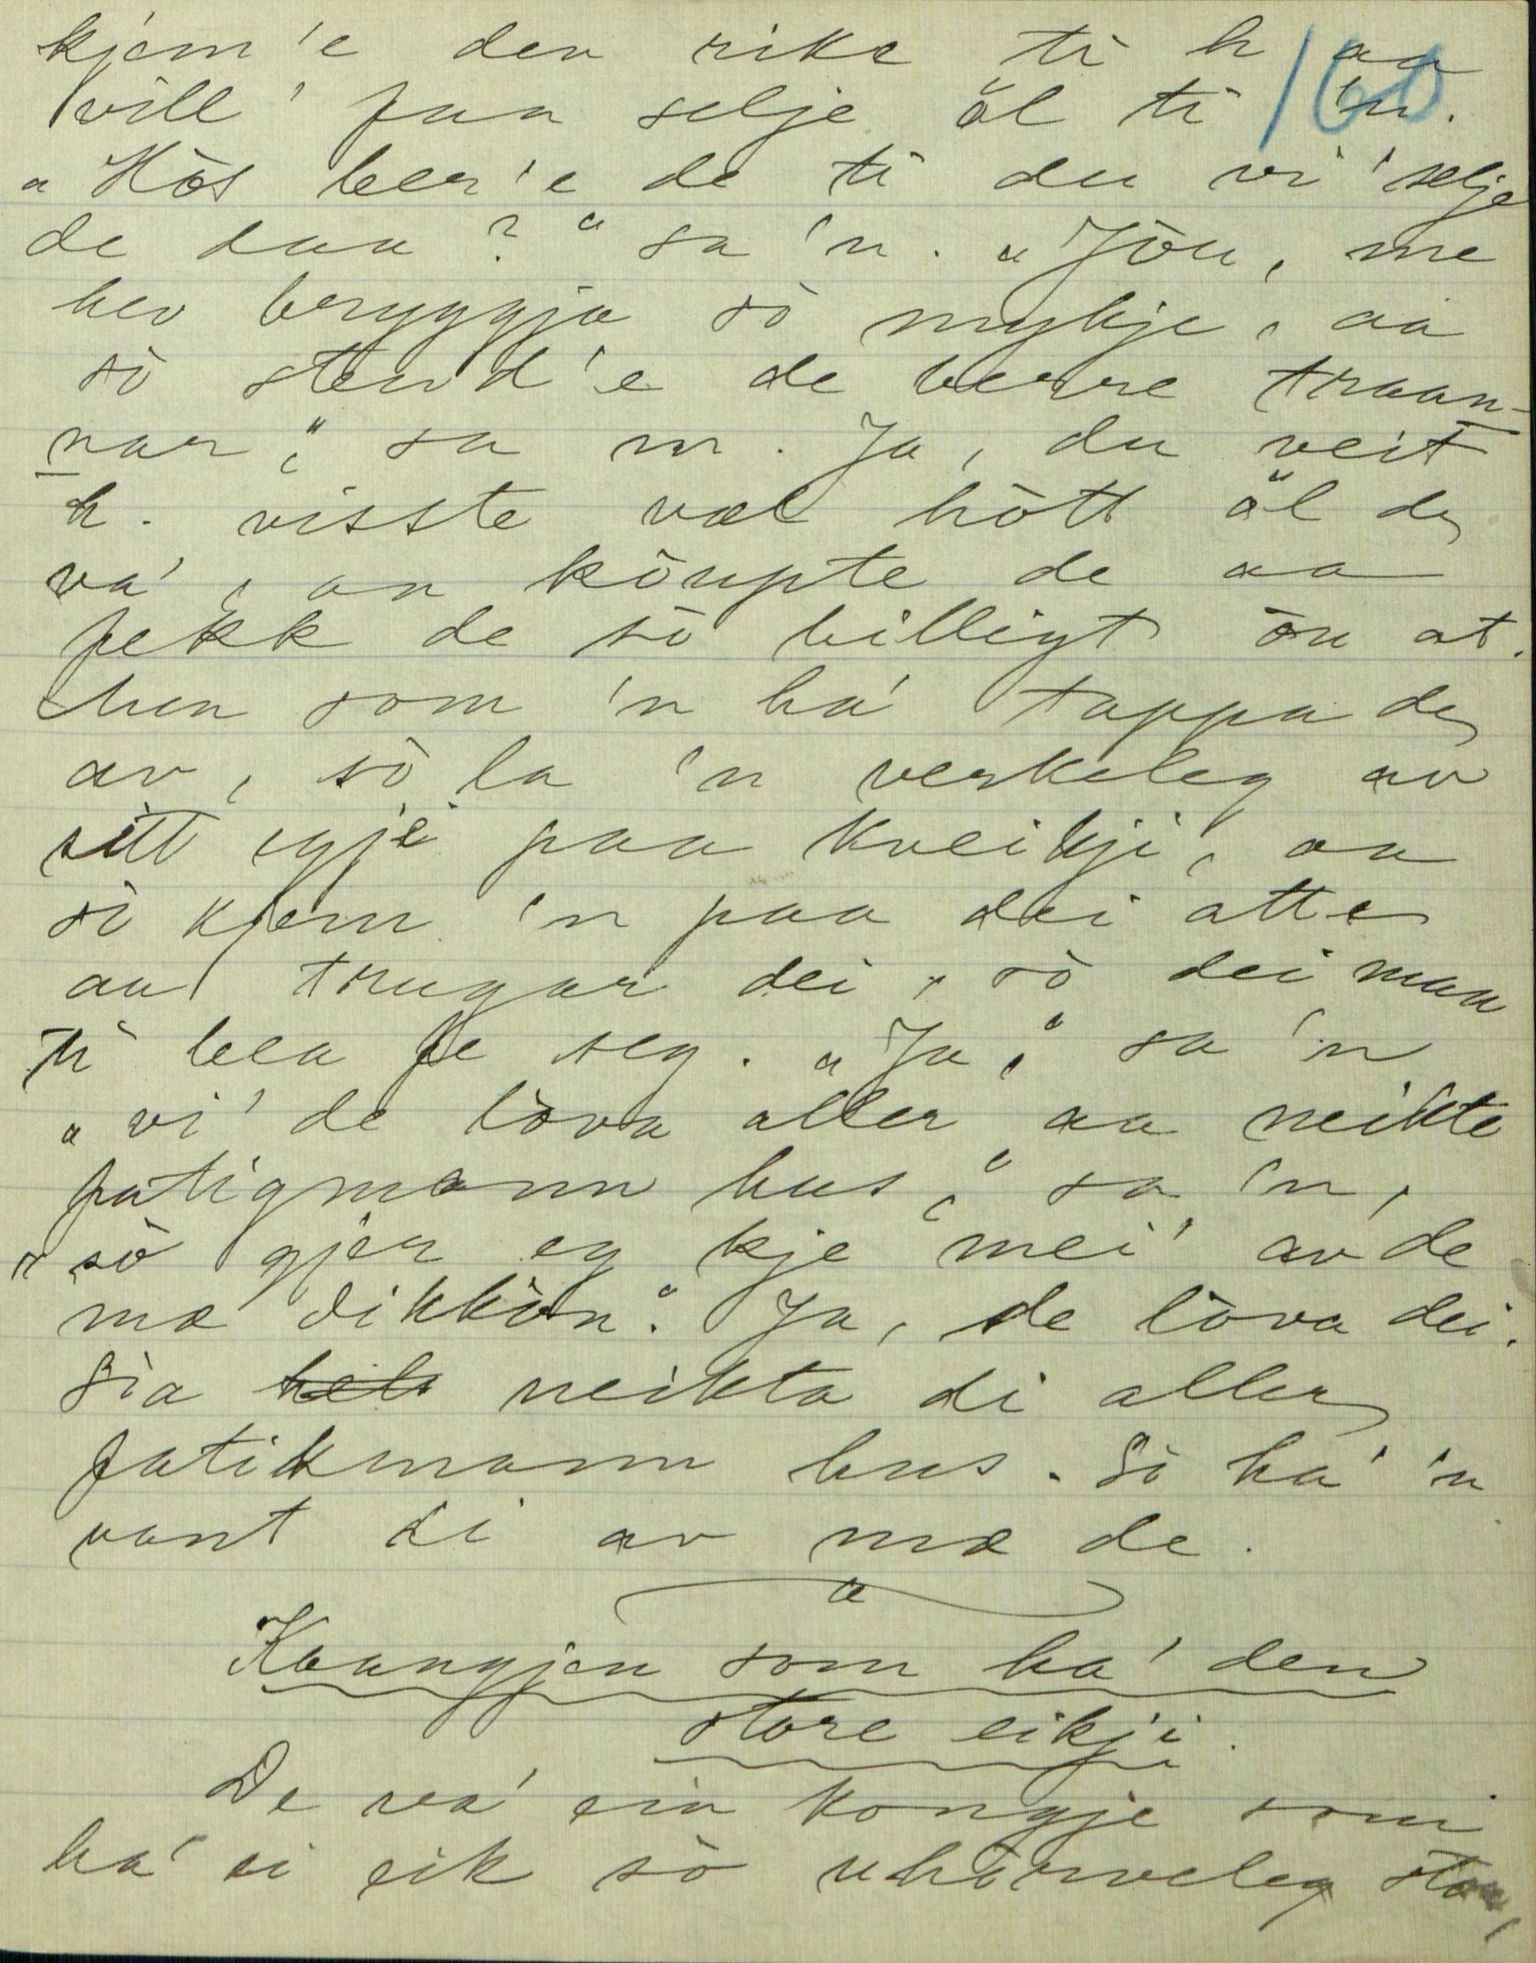 kjem'e den rike ti h aa
160
vill' faa selje öl ti 'n.
„Hòs beer'e de ti du vi' selje
de daa?“ sa 'n. „Jòu, me
hev bryggja sò mykje, aa
sò stend'e de berre traan-
nar“, sa 'n. Ja, du veit
h. visste væl hòtt öl de
va', an kòupte de aa
fekk de sò billigt òu at.
Men som 'n ha' tappa de
av, sò la 'n verkeleg av
sitt egje paa kveikji, aa
sò kjem 'n paa dei atte
aa trugar dei, sò dei maa
ti bea fe seg. „Ja“, sa 'n
„vi' de lòva aller aa neikte
fatigmann hus“, sa 'n,
„sò gjer eg kje mei' av de
mæ dikkòn“. Ja, de lòva dei.
Sia neikta di aller
fatikmann hus. Sò ha' 'n
vant di av mæ de.
Kaangjen som ha' den
store eikji.
De va' ein kongje som
ha' ei eik sò uhòrveleg stor,